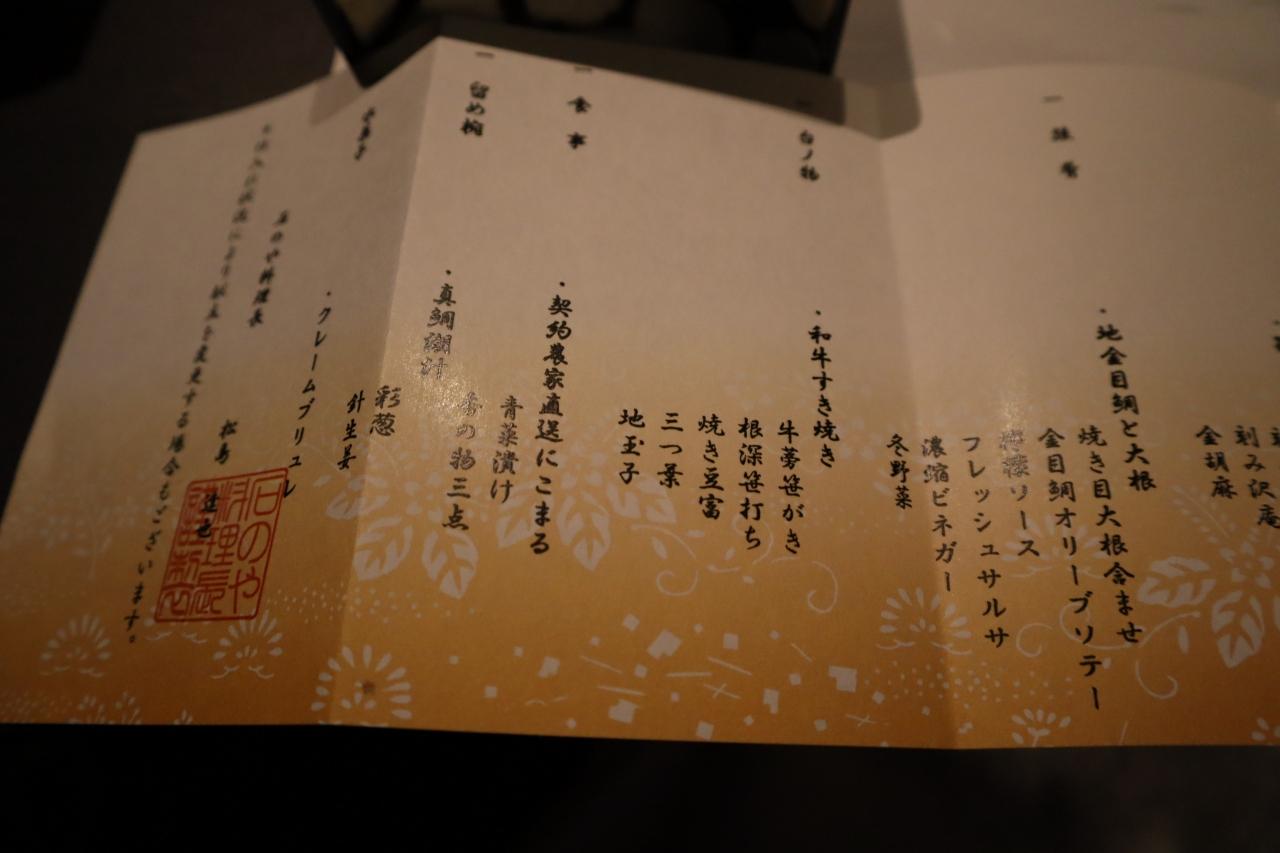 刻み沢庵
金胡麻
一
・地金目鯛と大根
焼き目大根含ませ
金目鯛オリーブソテー
檸檬ソース
フレッシュサルサ
濃縮ビネガー
冬野菜
台ノ物
・和牛すき焼き
牛蒡笹がき
根深笹打ち
焼き豆富
三つ葉
地玉子
一
食事
・契約農家直送にこまる
青菜漬け
香の物三点
一
留め椀
・真鯛潮汁
彩葱
針生姜
水菓子
・クレームブリュレ
石のや料理長
松島
達也
石のや
料理長
仕入れ状況により献立を変更する場合もございます。